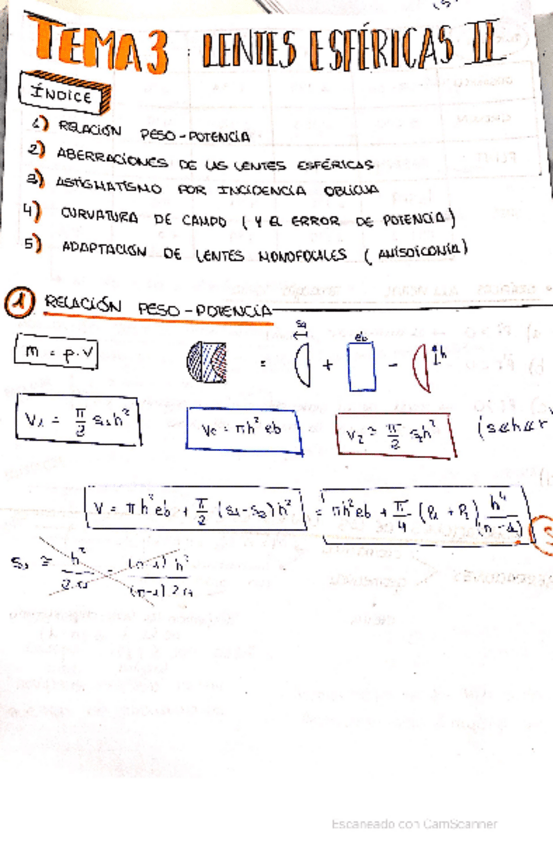 TEMA 3 : LENTES ESFÉRICAS II
ÍNDICE
1) RELACIÓN PESO-POTENCIA
2) ABERRACIONES DE LAS LENTES ESFÉRICAS
3) ASTIGMATISMO POR INCIDENCIA OBLICUA
4) CURVATURA DE CAMPO ( Y EL ERROR DE POTENCIA )
5) ADAPTACIÓN DE LENTES MONOFOCALES ( ANISOICONIA )
1 RELACIÓN PESO-POTENCIA
m = ρ·V
= + eb - h
V₁ = π/2 s₁h² Vc = πh² eb V₂ ≃ π/2 s₂h²
V = πh²eb + π/2 (s₁-s₂)h² = πh²eb + π/4 (P₁ + P₂) h⁴/(n-1)
Escaneado con CamScanner